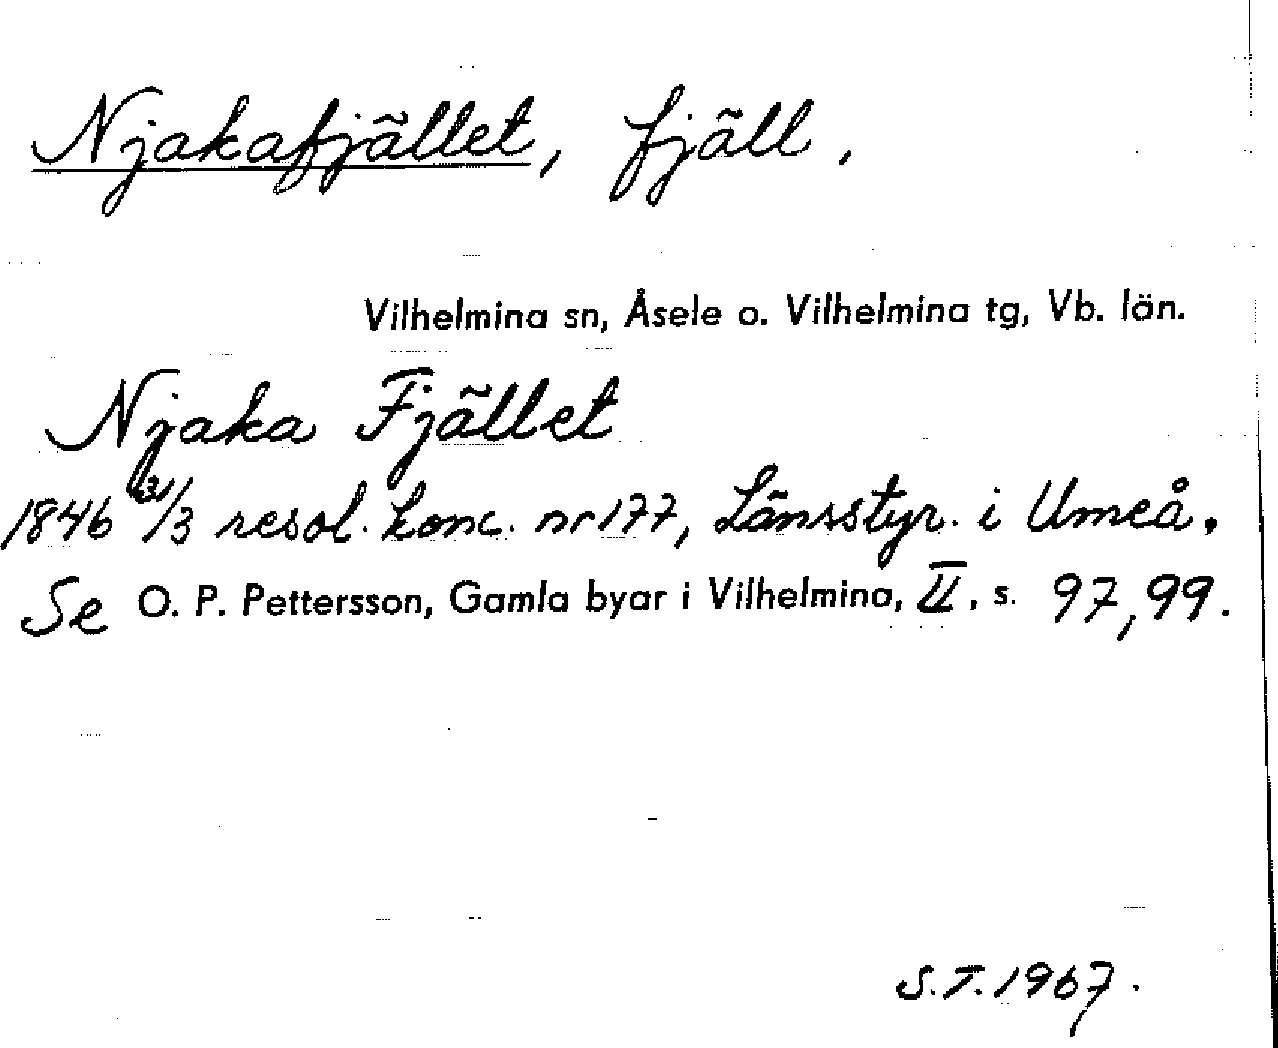 Njakafjället, fjäll.
Vilhelmina sn, Åsele o. Vilhelmina tg, Vb. län.
Njaka Fjället
1846 31/3 resol. konc. nr 177, Länsstyr. i Umeå.
Se O. P. Pettersson, Gamla byar i Vilhelmina, II, s. 97, 99.
S.T. 1967.